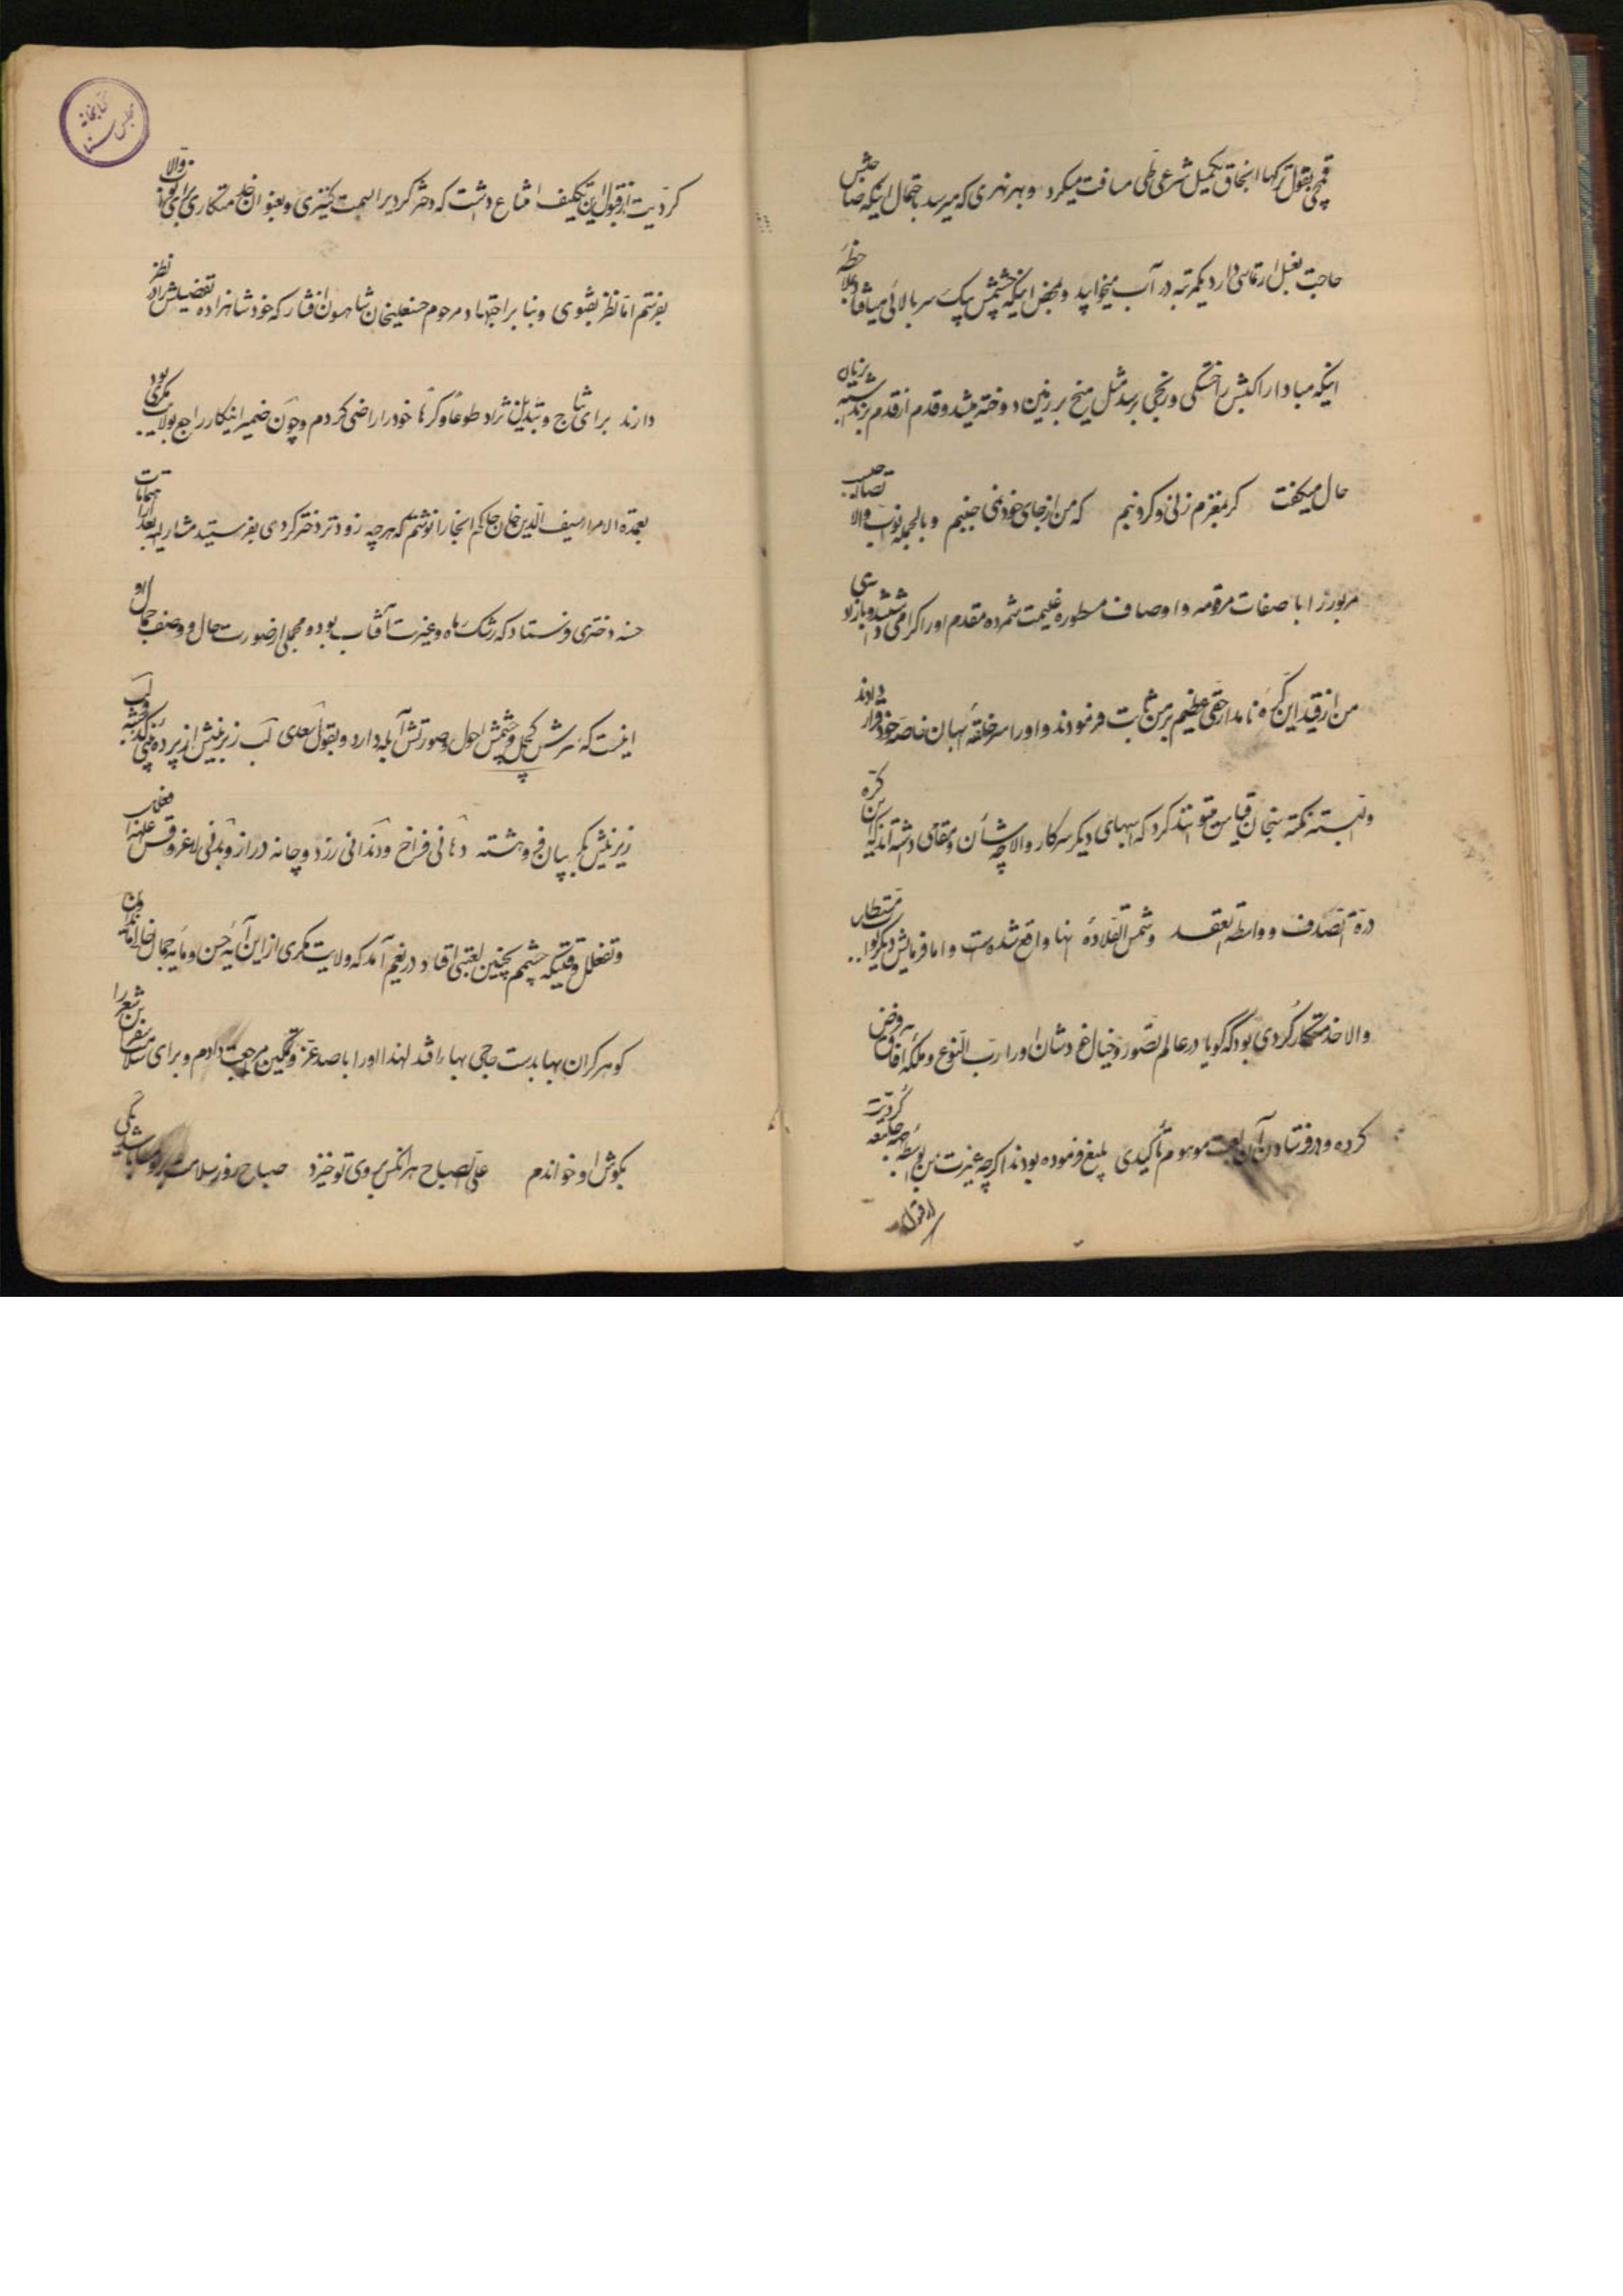 قمچی بقول ترکها اینجاق بکمیل شرعی طی مسافت میکرد و بهر نهری که میرسد باحتمال اینکه صاحبش
حاجت بغسل ارتماسی دارد یکمرتبه در آب میخوابید و بمحض اینکه چشمش بیک سربالائی میافتاد بملاحظه
اینکه مبادا راکبش را خستگی و رنجی برسد مثل میخ بر زمین دوخته میشد و قدم از قدم برنداشته بزبان
حال میگفت گر بمغزم زنی و گر دنبم که من از جای خود نمی جنبم و بالجمله نواب والا تصاحب
مزبور را با صفات مرقومه و اوصاف مسطوره غنیمت شمرده مقدم او را گرامی داشتند و با آزادی
من از قید این کره نامدار حقی عظیم بر من ثابت فرمودند و او را سر حلقه اسبان خاصه خود قرار دادند
و البته نکته سنجان قیاس میتوانند کرد که اسبهای دیگر سرکار والا چه شأن و مقامی داشته اند که این کره
درة الصدف و واسطة العقد و شمس القلاده آنها واقع شده است و اما فرمایش دیگر نواب مستطاب
والا خدمتکار کُردی بود که گویا در عالم تصور و خیال خودشان او را ربّ النوع و ملکه آفاق فرض
کرده و در فرستادن آن لعبت موهوم تأکیدی بلیغ فرموده بودند اگرچه غیرت من بواسطه جامعه کُردیّت
از قبول
کردیت از قبول این تکلیف امتناع داشت که دختر کردیرا بسمت کنیزی و بعنوان خدمتکاری برای نواب والا
بفرستم اما نظر بتقوی و بنا بر اجتهاد مرحوم حسنعلیخان شاهسون افشار که خود شاهزاده تفضیلش را در نظر
دارند برای نتاج و تبدیل نژاد طوعاً و کرهاً خود را راضی کردم و چون ضمیر اینکار راجع بولایت مکری بود
بعمدة الامرا سیف الدین خان حاکم آنجا را نوشتم که هر چه زودتر دختر کردی بفرستید مشارالیه بعد از اهتمامات
حسنه دختری فرستاد که رشک ماه و غیرت آفتاب بود و مجملی از صورت حال و وصف جمال او
اینست که سرش کچل و چشمش احول و صورتش آبله دارد و بقول سعدی لب زبرینش از پره بینی گذشته و لب
زیرینش بگریبان فرو هشته دهانی فراخ و دندانی زرد و چانه دراز و بدنی لاغر و قس علیهذا فعلل
و تفعلل وقتیکه چشمم بچنین لعبتی افتاد دریغم آمد که ولایت مکری از این آیه حسن و مایه جمال خالی ماند و آن
گوهر گران بها بدست حاجی بهاء افتد لهذا او را با صد عزّ و تمکین مراجعت دادم و برای سلامت سفر این شعر را
بگوش او خواندم علی الصباح هر آنکس بروی تو خیزد صباح روز سلامت بر او مسا باشد